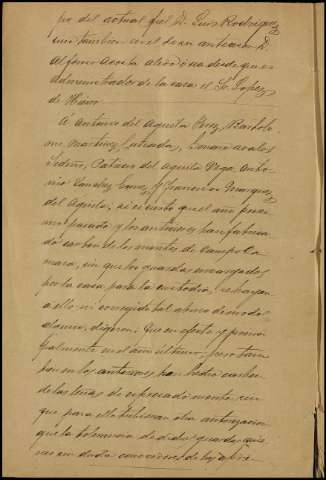 pio del actual fiel D. Luis Rodriguez
como tambien con el de su antecesor D.
Alfonso desde que es
Administrador de la casa el Sr. Lopez
de Haro.
Á Antonio del Aguila Perez, Bartolo
me Martinez Estrada, Genaro
Cedeño, Patricio del Aguila Vega, Anto
nio Canales Gomez, y Francisco Marquez
del Aguila, si es cierto que el año proxi
mo pasado y los anteriores han fabrica
do carbon de los montes de campo Ca
mara, sin que los guardas encargados
por la casa para la custodia, se hayan
a ello ni corregido tal abuso de modo
alguno, digeron: Que en efecto y princi
palmente en el año último, pero tam
bien en los anteriores han hecho carbon
de las leñas de espresado monte sin
que para ello hubiesen otra autorizacion
que la tolerancia de dichos guardas, quie
nes sin duda conocedores de los